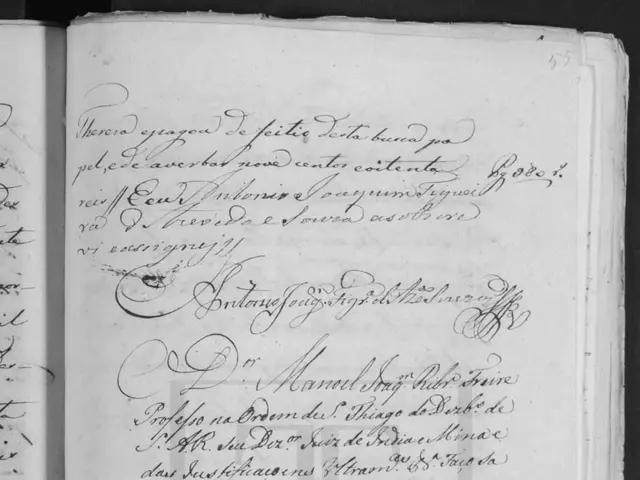 55
Thereza e pagou de feitio desta busca pa
pel, e de averbar nove centos e oitenta
reis // E eu Antonio Joaquim Figuei
ra d Azevedo e Souza a sobscre
vi e asignej //
Pg 980 r.
Antonio Joaqm Figra de Azdo e Souza
Dor Manoel Joaqm Ribro Freire
Professo na Ordem de S. Thiago do Dezbo de
S. A. R. seu Dezor Juiz de India e Mina e
das Justificacoens Ultramas &a Faço sa